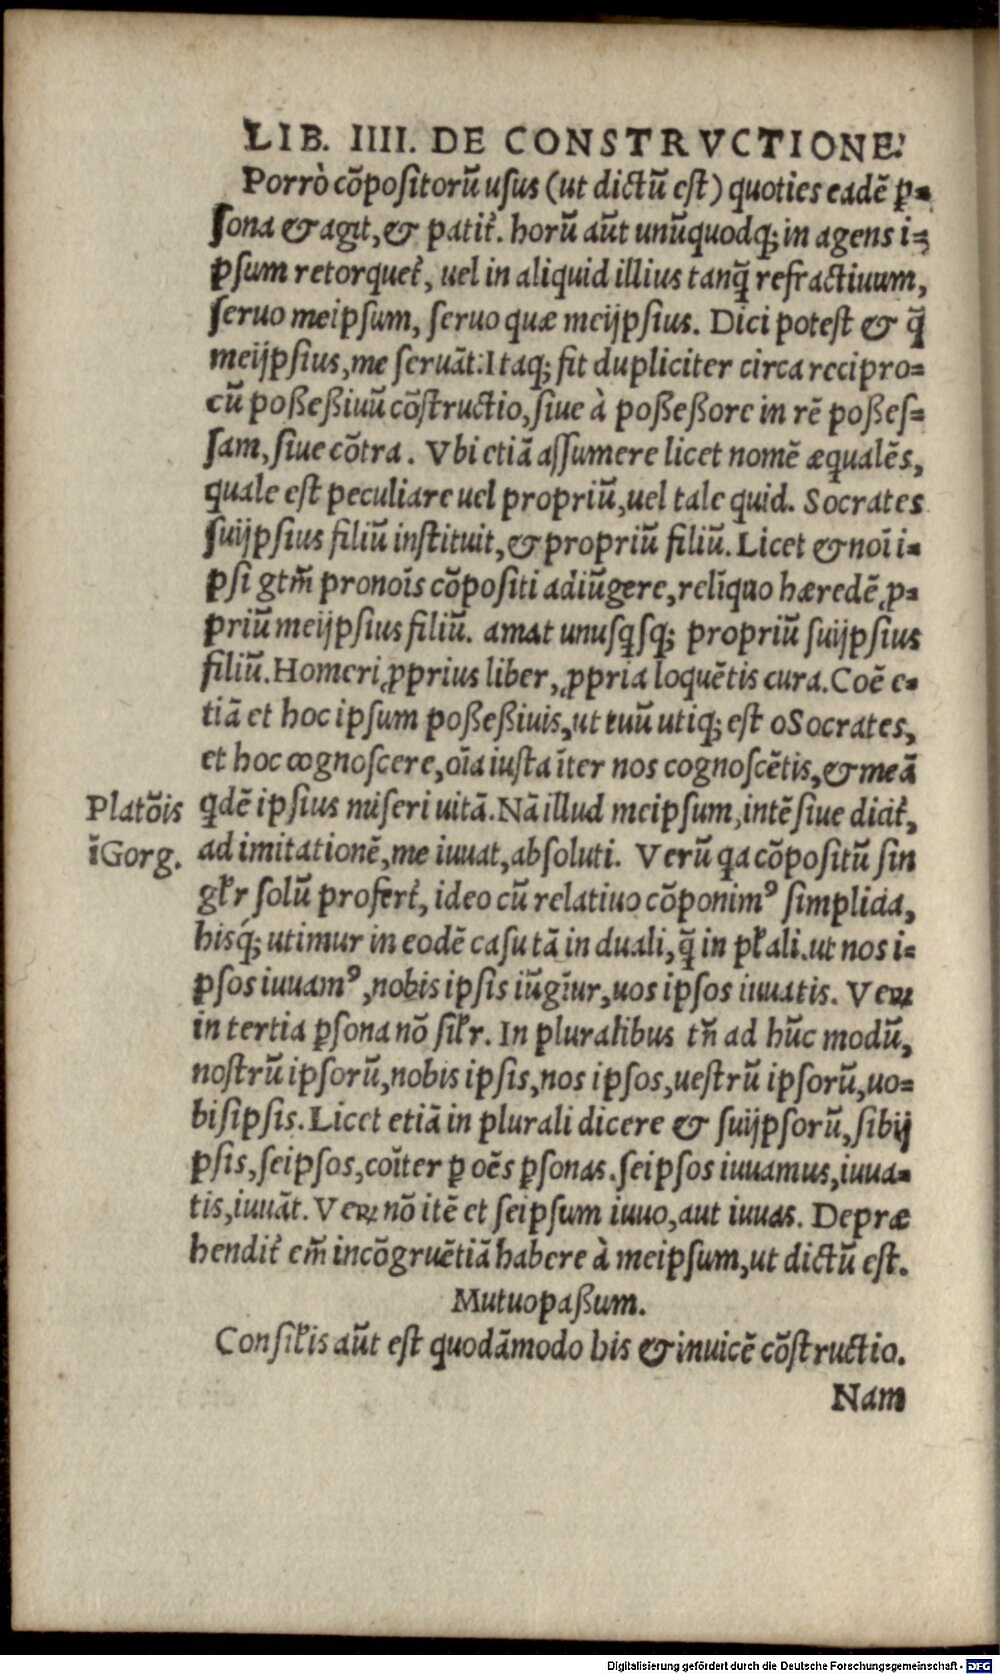 LIB. IIII. DE CONSTRVCTIONE.
Porrò cõpositorũ usus (ut dictũ est) quoties eadẽ ꝑ-
sona & agit, & patit̃. horũ aũt unũquodq; in agens i-
psum retorquet̃, uel in aliquid illius tanq̃ refractiuum,
seruo meipsum, seruo quæ meijpsius. Dici potest & q̃
meijpsius, me seruãt. Itaq; fit dupliciter circa recipro-
cũ poßeßiuũ cõstructio, siue à poßeßore in rẽ poßes-
sam, siue cõtra. Vbi etiã assumere licet nomẽ æqualẽs,
quale est peculiare uel propriũ, uel tale quid. Socrates
suijpsius filiũ instituit, & propriũ filiũ. Licet & noĩ i-
psi gtm̃ pronoĩs cõpositi adiũgere, relĩquo hæredẽ ꝓ-
priũ meijpsius filiũ. amat unusq̃sq; propriũ suijpsius
filiũ. Homeri ꝓprius liber, ꝓpria loquẽtis cura. Coẽ e-
tiã et hoc ipsum poßeßiuis, ut tuũ utiq; est o Socrates,
et hoc cognoscere, oĩa iusta ĩter nos cognoscẽtis, & meã
qdẽ ipsius miseri uitã. Nã illud meipsum, intẽsiue dicit̃,
Platõis
ĩ Gorg.
ad imitationẽ, me iuuat, absoluti. Verũ qa cõpositũ sin
gl̃r solũ profert̃, ideo cũ relatiuo cõponimꝰ simplicia,
hisq́; utimur in eodẽ casu tã in duali, q̃ in pl̃ali. ut nos i-
psos iuuamꝰ, nobis ipsis iũgĩur, uos ipsos iuuatis. Veꝝ
in tertia ꝑsona nõ sil̃r. In pluralibus tñ ad hũc modũ,
nostrũ ipsorũ, nobis ipsis, nos ipsos, uestrũ ipsorũ, uo-
bisipsis. Licet etiã in plurali dicere & suijpsorũ, sibij
psis, seipsos, coĩter ꝑ oẽs ꝑsonas. seipsos iuuamus, iuua-
tis, iuuãt. Veꝝ nõ itẽ et seipsum iuuo, aut iuuas. Depræ
hendit̃ em̃ incõgruẽtiã habere à meipsum, ut dictũ est.
Mutuopaßum.
Consil̃is aũt est quodãmodo his & inuicẽ cõstructio.
Nam
Digitalisierung gefördert durch die Deutsche Forschungsgemeinschaft - DFG